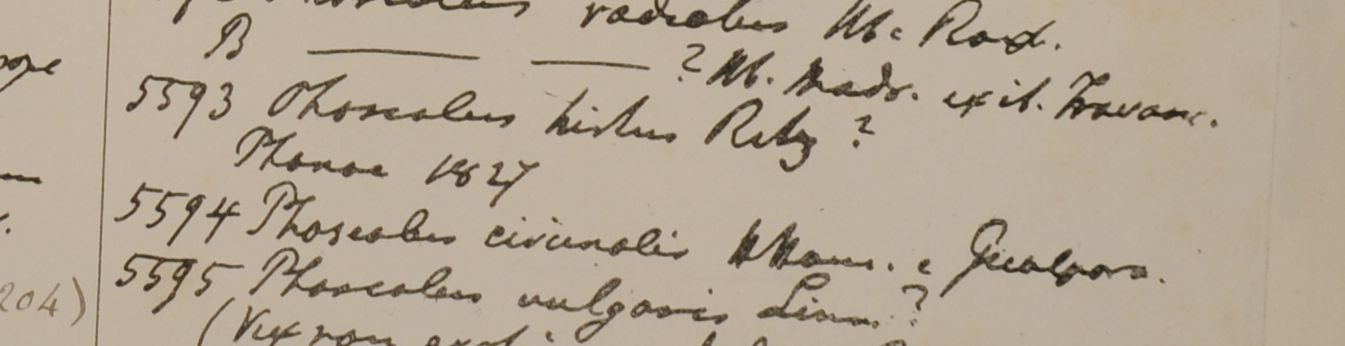 Phaseolus radiatus Hb. Rox.
B — — ? Hb. Madr. exit. Travanc.
5593 Phaseolus hirtus Retz ?
Phanoe 1827
5594 Phaseolus circinalis HHam. e Gualpara.
5595 Phaseolus vulgaris Linn ?
(Vix
204)